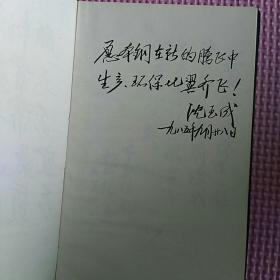 愿本钢在新的腾飞中
生产、环保比翼齐飞!
沈玉成
九八五年九月廿八日